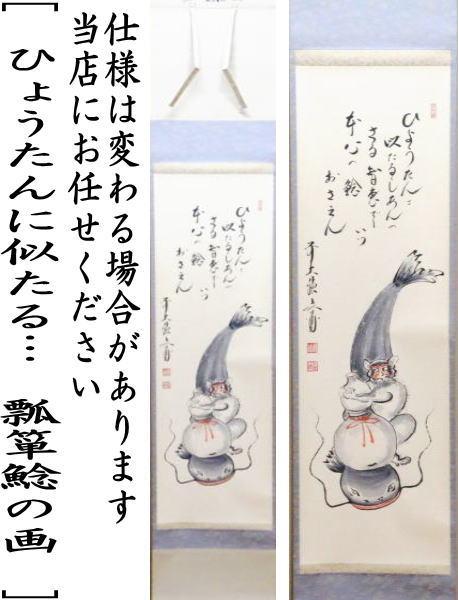 仕様は変わる場合があります
当店にお任せください
[ ひょうたんに似たる… 瓢箪鯰の画 ]
ひょうたんに
似たるしあんの
さる智恵でハ
本心の鯰
おさえん
ひょうたんに
似たるしあんの
さる智恵でハ
本心の鯰
おさえん